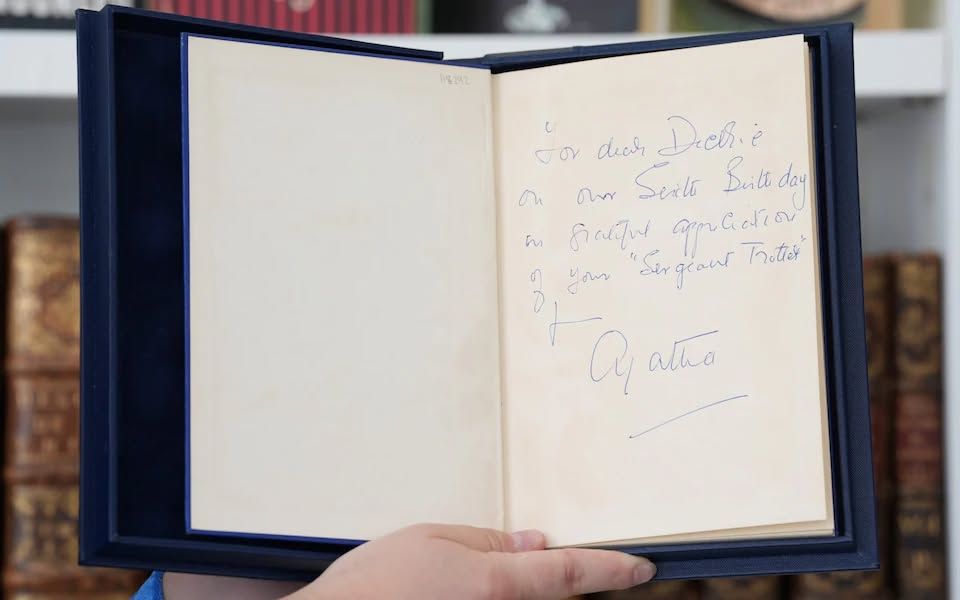 118292
For dear Dickie
on our Sixth Birthday
in grateful appreciation
of your "Sergeant Trotter"
Agatha